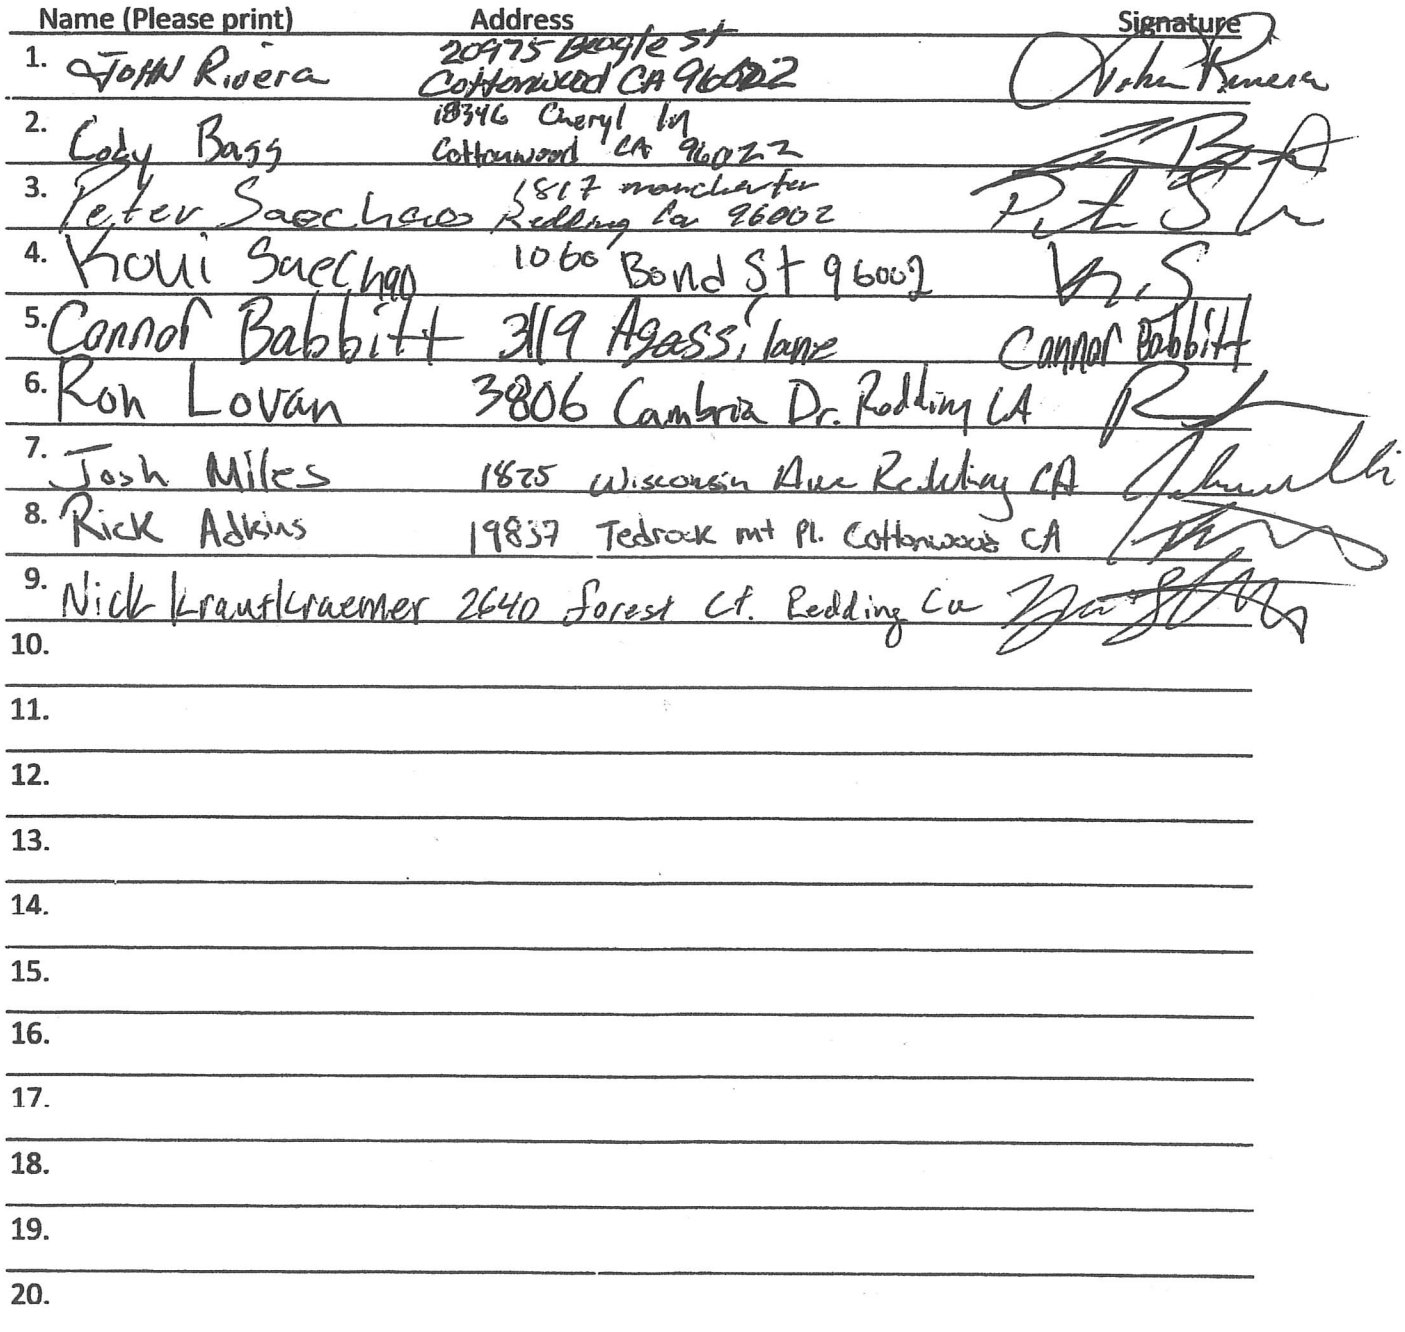 Name (Please print) Address Signature
20975 Beogle St
1. JOHN Rivera Cottonwood CA 96022 John Rivera
18346 Cheryl ln
2. Cody Bagg Cottonwood CA 96022
1817 manchester
3. Peter Saechao Redding Ca 96002
4. Koui Saechao 1060 Bond St 96002 K.S
5. Connor Babbitt 3119 Agassi lane Connor Babbitt
6. Ron Lovan 3806 Cambria Dr. Redding CA
7. Josh Miles 1825 Wisconsin Ave Redding CA
8. Rick Adkins 19837 Tedrock mt Pl. Cottonwood CA
9. Nick Krautkraemer 2640 forest Ct. Redding Ca
10.
11.
12.
13.
14.
15.
16.
17.
18.
19.
20.